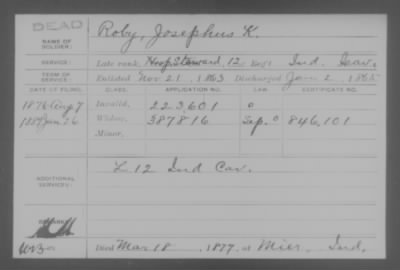 DEAD
Roby, Josephus K.
NAME OF SOLDIER:
SERVICE: Late rank, Hosp. Steward, 12 Ind. Cav.
TERM OF SERVICE: Enlisted Nov 21, 1863 Discharged Jan 2, 1865
DATE OF FILING. CLASS. APPLICATION NO. LAW. CERTIFICATE NO.
1876 Aug 7 Invalid, 223,601 o
Jan 26 Widow, 387816 Sep. o 846,101
Minor,
ADDITIONAL SERVICES: L 12 Ind Cav.
REMARKS:
Died Mar 18, 1877, at Mier, Ind.